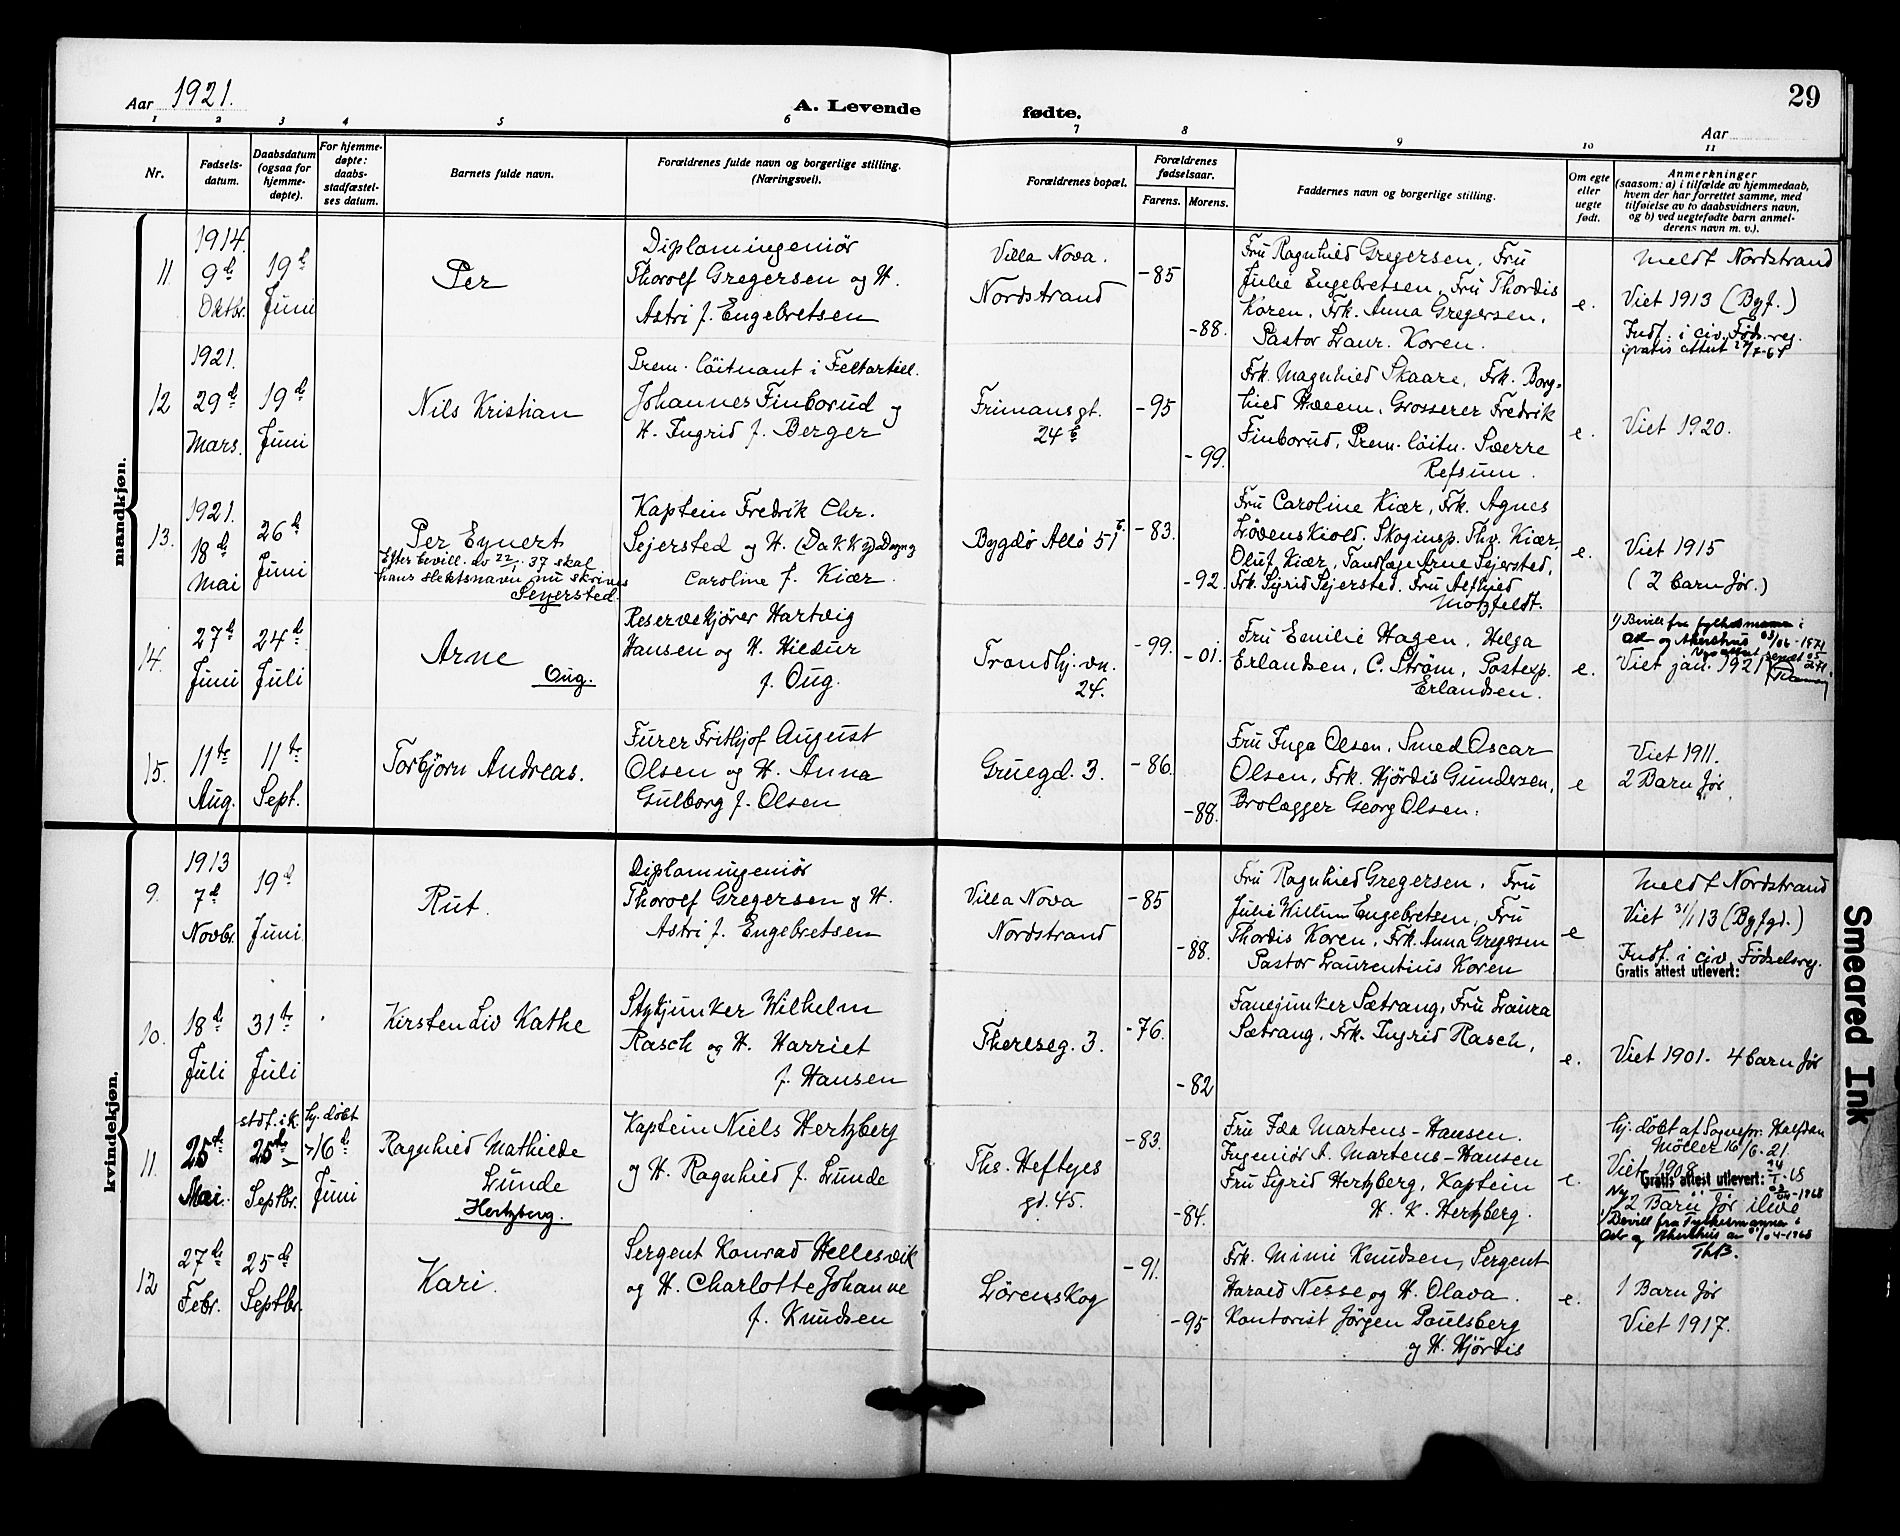 Aar 1921.
A. Levende
fødte.
29
Aar
1 2 3 4 5 6 7 8 9 10 11
Nr.
Fødsels-
datum.
Daabsdatum
(ogsaa for
hjemme-
døpte).
For hjemme-
døpte:
daabs-
stadfæstel-
ses datum.
Barnets fulde navn.
Forældrenes fulde navn og borgerlige stilling.
(Næringsvei).
Forældrenes bopæl.
Forældrenes
fødselsaar.
Farens. Morens.
Faddernes navn og borgerlige stilling.
Om egte
eller
uegte
født.
Anmerkninger
(saasom: a) i tilfælde av hjemmedaab,
hvem der har forrettet samme, med
tilføielse av to daabsvidners navn,
og b) ved uegtefødte barn anmel-
derens navn m. v.).
mandkjøn.
11.
1914.
9d
Oktbr.
19d
Juni
Per
Diplomingeniør
Thorolf Gregersen og H.
Astri f. Engebretsen
Villa Nova.
Nordstrand
-85
-88.
Fru Ragnhild Gregersen, Fru
Julie Engebretsen, Fru Thordis
Koren, Frk. Anna Gregersen,
Pastor Laur. Koren.
e.
Meldt Nordstrand
Viet 1913 (Byf.)
Indf. i civ. Føds.reg.
gratis attest
12
1921.
29d
Mars.
19d
Juni
Nils Kristian
Prem. löitnant i Feltartill.
Johannes Finborud og
H. Ingrid f. Berger
Frimansgt.
24b
-95
-99.
Frk. Magnhild Skaare, Frk. Borg-
hild Hæem, Grosserer Fredrik
Finborud, Prem. löitn. Sverre
Refsum.
e.
Viet 1920.
13.
1921.
18d
Mai
26d
Juni
Per Eynert
Efter bevill. av 22/1 37 skal
hans slektsnavn nu skrives
Seyersted.
Kaptein Fredrik Chr.
Sejersted og H. Dagny
Caroline f. Kiær.
Bygdø Allé 51b.
-83.
-92.
Fru Caroline Kiær, Frk. Agnes
Løvenskiold, Skoginsp. Thv. Kiær,
Oluf Kiær, Tandlæge Arne Sejersted,
Frk. Sigrid Sejersted, Fru
Motzfeldt.
e.
Viet 1915
(2 barn før.)
14.
27d
Juni
24d
Juli
Arne
Oug.
Reservekjører Hartvig
Hansen og H. Hildur
f. Oug.
Trondhj.vn.
24.
-99.
-01.
Fru Emilie Hagen, Helga
Erlandsen, C. Strøm, Postexp.
Erlandsen.
e.
1) Bevill fra fylkesmannen i
Oslo og Akershus
Viet jan. 1921
15.
11te
Aug.
11te
Sept.
Torbjørn Andreas.
Furer Frithjof August
Olsen og H. Anna
Gulborg f. Olsen
Gruegd. 3.
-86.
-88.
Fru Inga Olsen, Smed Oscar
Olsen, Frk. Hjördis Gundersen,
Brolægger Georg Olsen.
e
Viet 1911.
2 Barn før.
kvindekjøn.
9.
1913
7d
Novbr.
19d
Juni
Rut.
Diplomingeniør
Thorolf Gregersen og H.
Astri f. Engebretsen
Villa Nova
Nordstrand
-85
-88.
Fru Ragnhild Gregersen, Fru
Julie Willum Engebretsen, Fru
Thordis Koren, Frk. Anna Gregersen
Pastor Laurentius Koren
e
Meldt Nordstrand
Viet 31/1 13 (Byfgd.)
Indf. i civ. Fødselsreg.
Gratis attest utlevert:
10.
18d
Juli
31te
Juli
Kirsten Liv Kathe
Stykjunker Wilhelm
Rasch og H. Harriet
f. Hansen
Thereseg. 3.
-76.
-82
Fanejunker Sætrang, Fru Laura
Sætrang, Frk. Ingrid Rasch,
e.
Viet 1901. 4 barn før
11.
25te
Mai.
stdf. i K.
25de
Septbr.
hj. döbt
16d
Juni
Ragnhild Mathilde
Lunde
Hertzberg.
Kaptein Niels Hertzberg
og H. Ragnhild f. Lunde
Ths. Heftyes
gd. 45.
-83.
-84.
Fru Ida Martens-Hansen.
Ingeniør A. Martens-Hansen
Fru Sigrid Hertzberg, Kaptein
H. K. Hertzberg.
e.
hj. döbt af Sognepr. Halfdan
Möller 16/6-21.
Viet 1908
Gratis attest utlevert:
2 Barn før
1) Bevill fra Fylkesmannen i
Oslo og Akershus av
ThB.
12
27de
Febr.
25d
Septbr.
Kari.
Sergent Konrad Hellesvik
og H. Charlotte Johanne
f. Knudsen
Lörenskog
-91.
-95
Frk. Mimi Knudsen, Sergent
Harald Nesse og H. Olava.
Kontorist Jörgen Poulsberg
og H. Hjördis
e.
1 Barn før
Viet 1917.
Smeared Ink